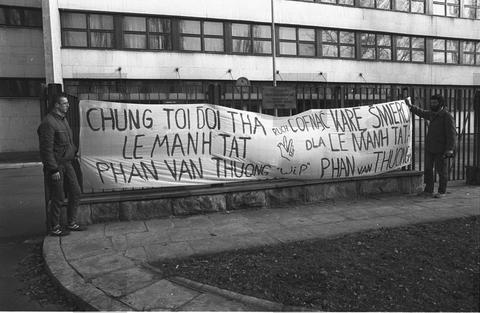 CHUNG TOI ĐOI THA
LE MANH TAT
PHAN VAN THUONG
RUCH
"WiP"
COFNĄĆ KARĘ ŚMIERCI
DLA LE MANH TAT
PHAN VAN THUONG